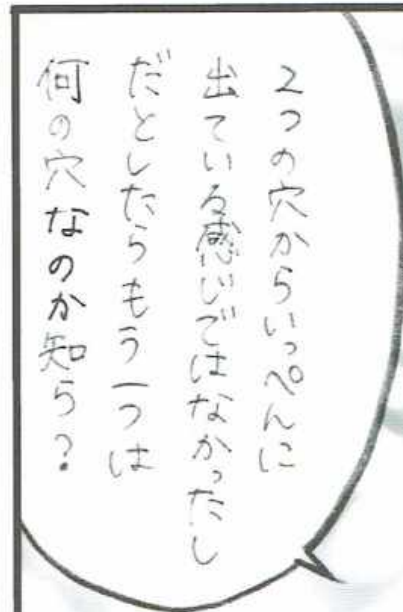 2つの穴からいっぺんに
出ている感じではなかったし
だとしたらもう一つは
何の穴なのか知ら?